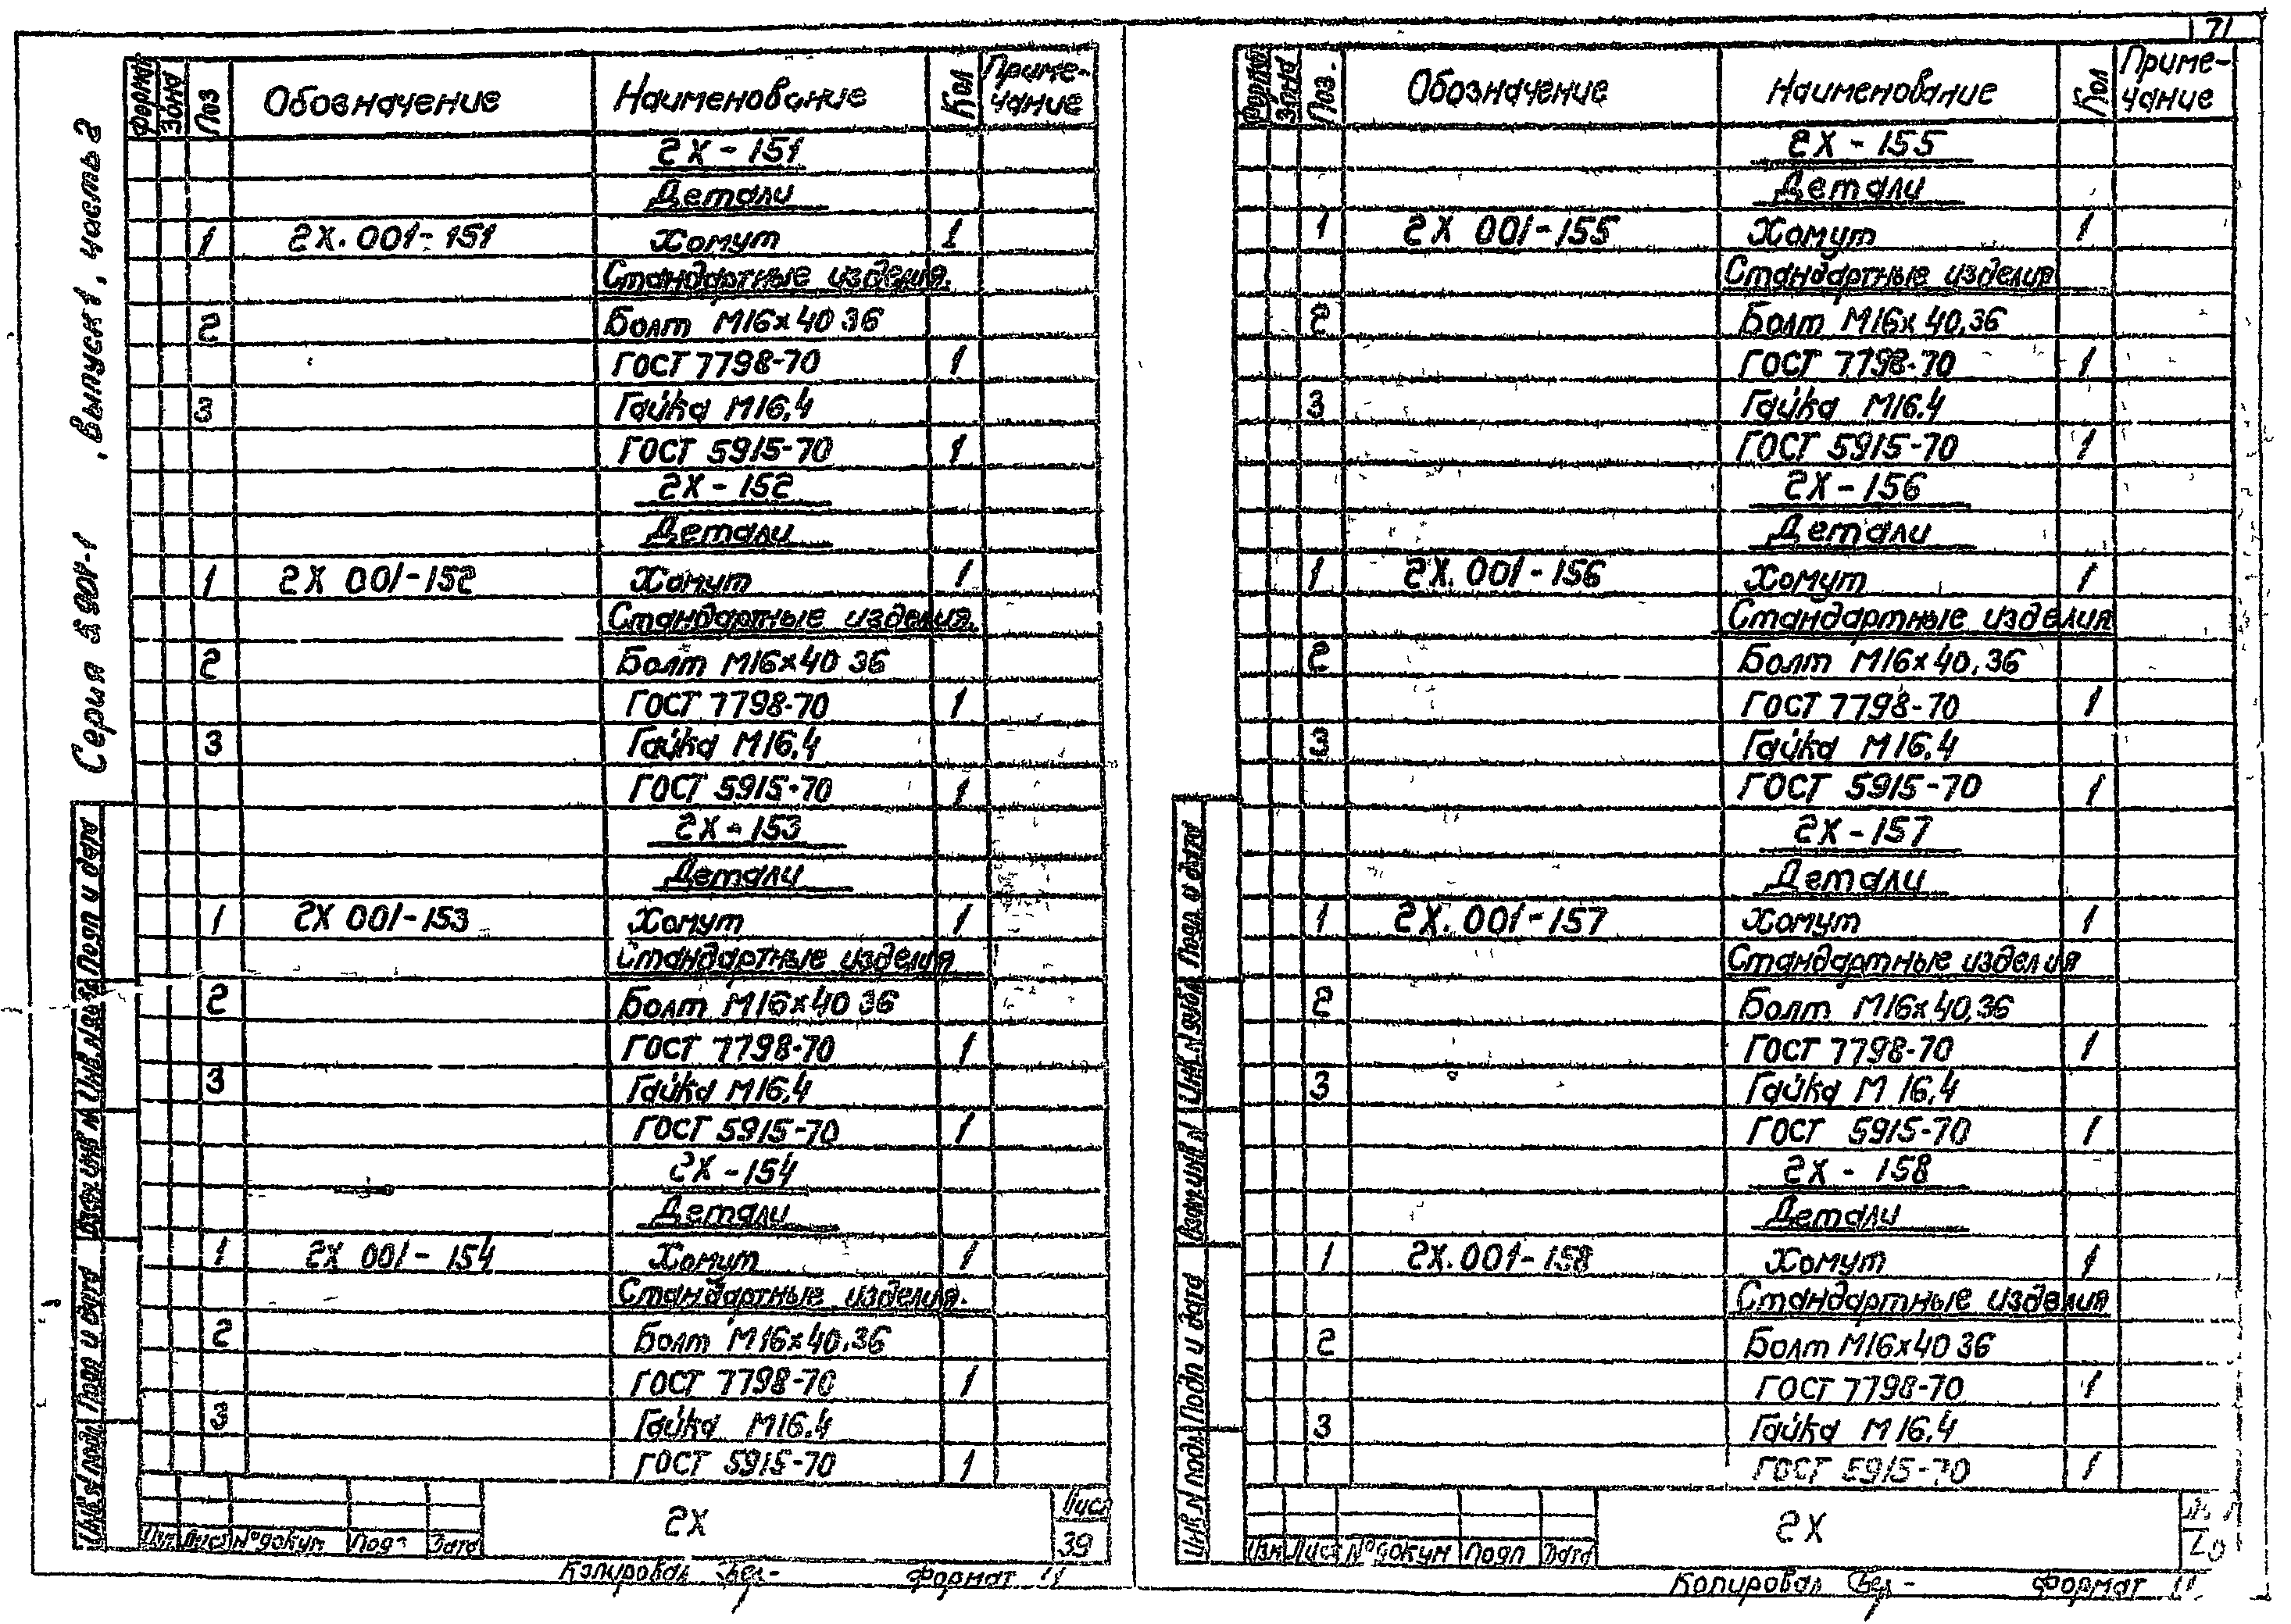 71
Серия 5.900-1 . Выпуск 1, часть 2
Формат Зона Поз Обозначение Наименование Кол Приме-чание
2Х - 151
Детали
1 2Х. 001 - 151 Хомут 1
Стандартные изделия.
2 Болт М16х40 36
ГОСТ 7798-70 1
3 Гайка М16.4
ГОСТ 5915-70 1
2Х - 152
Детали
1 2Х 001 - 152 Хомут 1
Стандартные изделия.
2 Болт М16х40 36
ГОСТ 7798-70 1
3 Гайка М16.4
ГОСТ 5915-70 1
2Х - 153
Детали
1 2Х 001 - 153 Хомут 1
Стандартные изделия
2 Болт М16х40 36
ГОСТ 7798-70 1
3 Гайка М16.4
ГОСТ 5915-70 1
2Х - 154
Детали
1 2Х 001 - 154 Хомут 1
Стандартные изделия.
2 Болт М16х40.36
ГОСТ 7798-70 1
3 Гайка М16.4
ГОСТ 5915-70 1
Инв № подл. Подп и дата Взам инв № Инв. № дубл Подп и дата
2Х
Лист
39
Изм Лист № докум Подп Дата
Копировал Формат 11
Формат Зона Поз. Обозначение Наименование Кол Приме-чание
2Х - 155
Детали
1 2Х 001 - 155 Хомут 1
Стандартные изделия
2 Болт М16х 40.36
ГОСТ 7798-70 1
3 Гайка М16.4
ГОСТ 5915-70 1
2Х - 156
Детали
1 2Х. 001 - 156 Хомут 1
Стандартные изделия
2 Болт М16х40.36
ГОСТ 7798-70 1
3 Гайка М16.4
ГОСТ 5915-70 1
2Х - 157
Детали
1 2Х. 001 - 157 Хомут 1
Стандартные изделия
2 Болт М16х40.36
ГОСТ 7798-70 1
3 Гайка М 16.4
ГОСТ 5915-70 1
2Х - 158
Детали
1 2Х. 001 - 158 Хомут 1
Стандартные изделия
2 Болт М16х40 36
ГОСТ 7798-70 1
3 Гайка М 16.4
ГОСТ 5915-70 1
Инв № подл. Подп и дата Взам инв № Инв. № дубл Подп. и дата
2Х
Изм Лист № докум Подп Дата
Копировал Формат 11